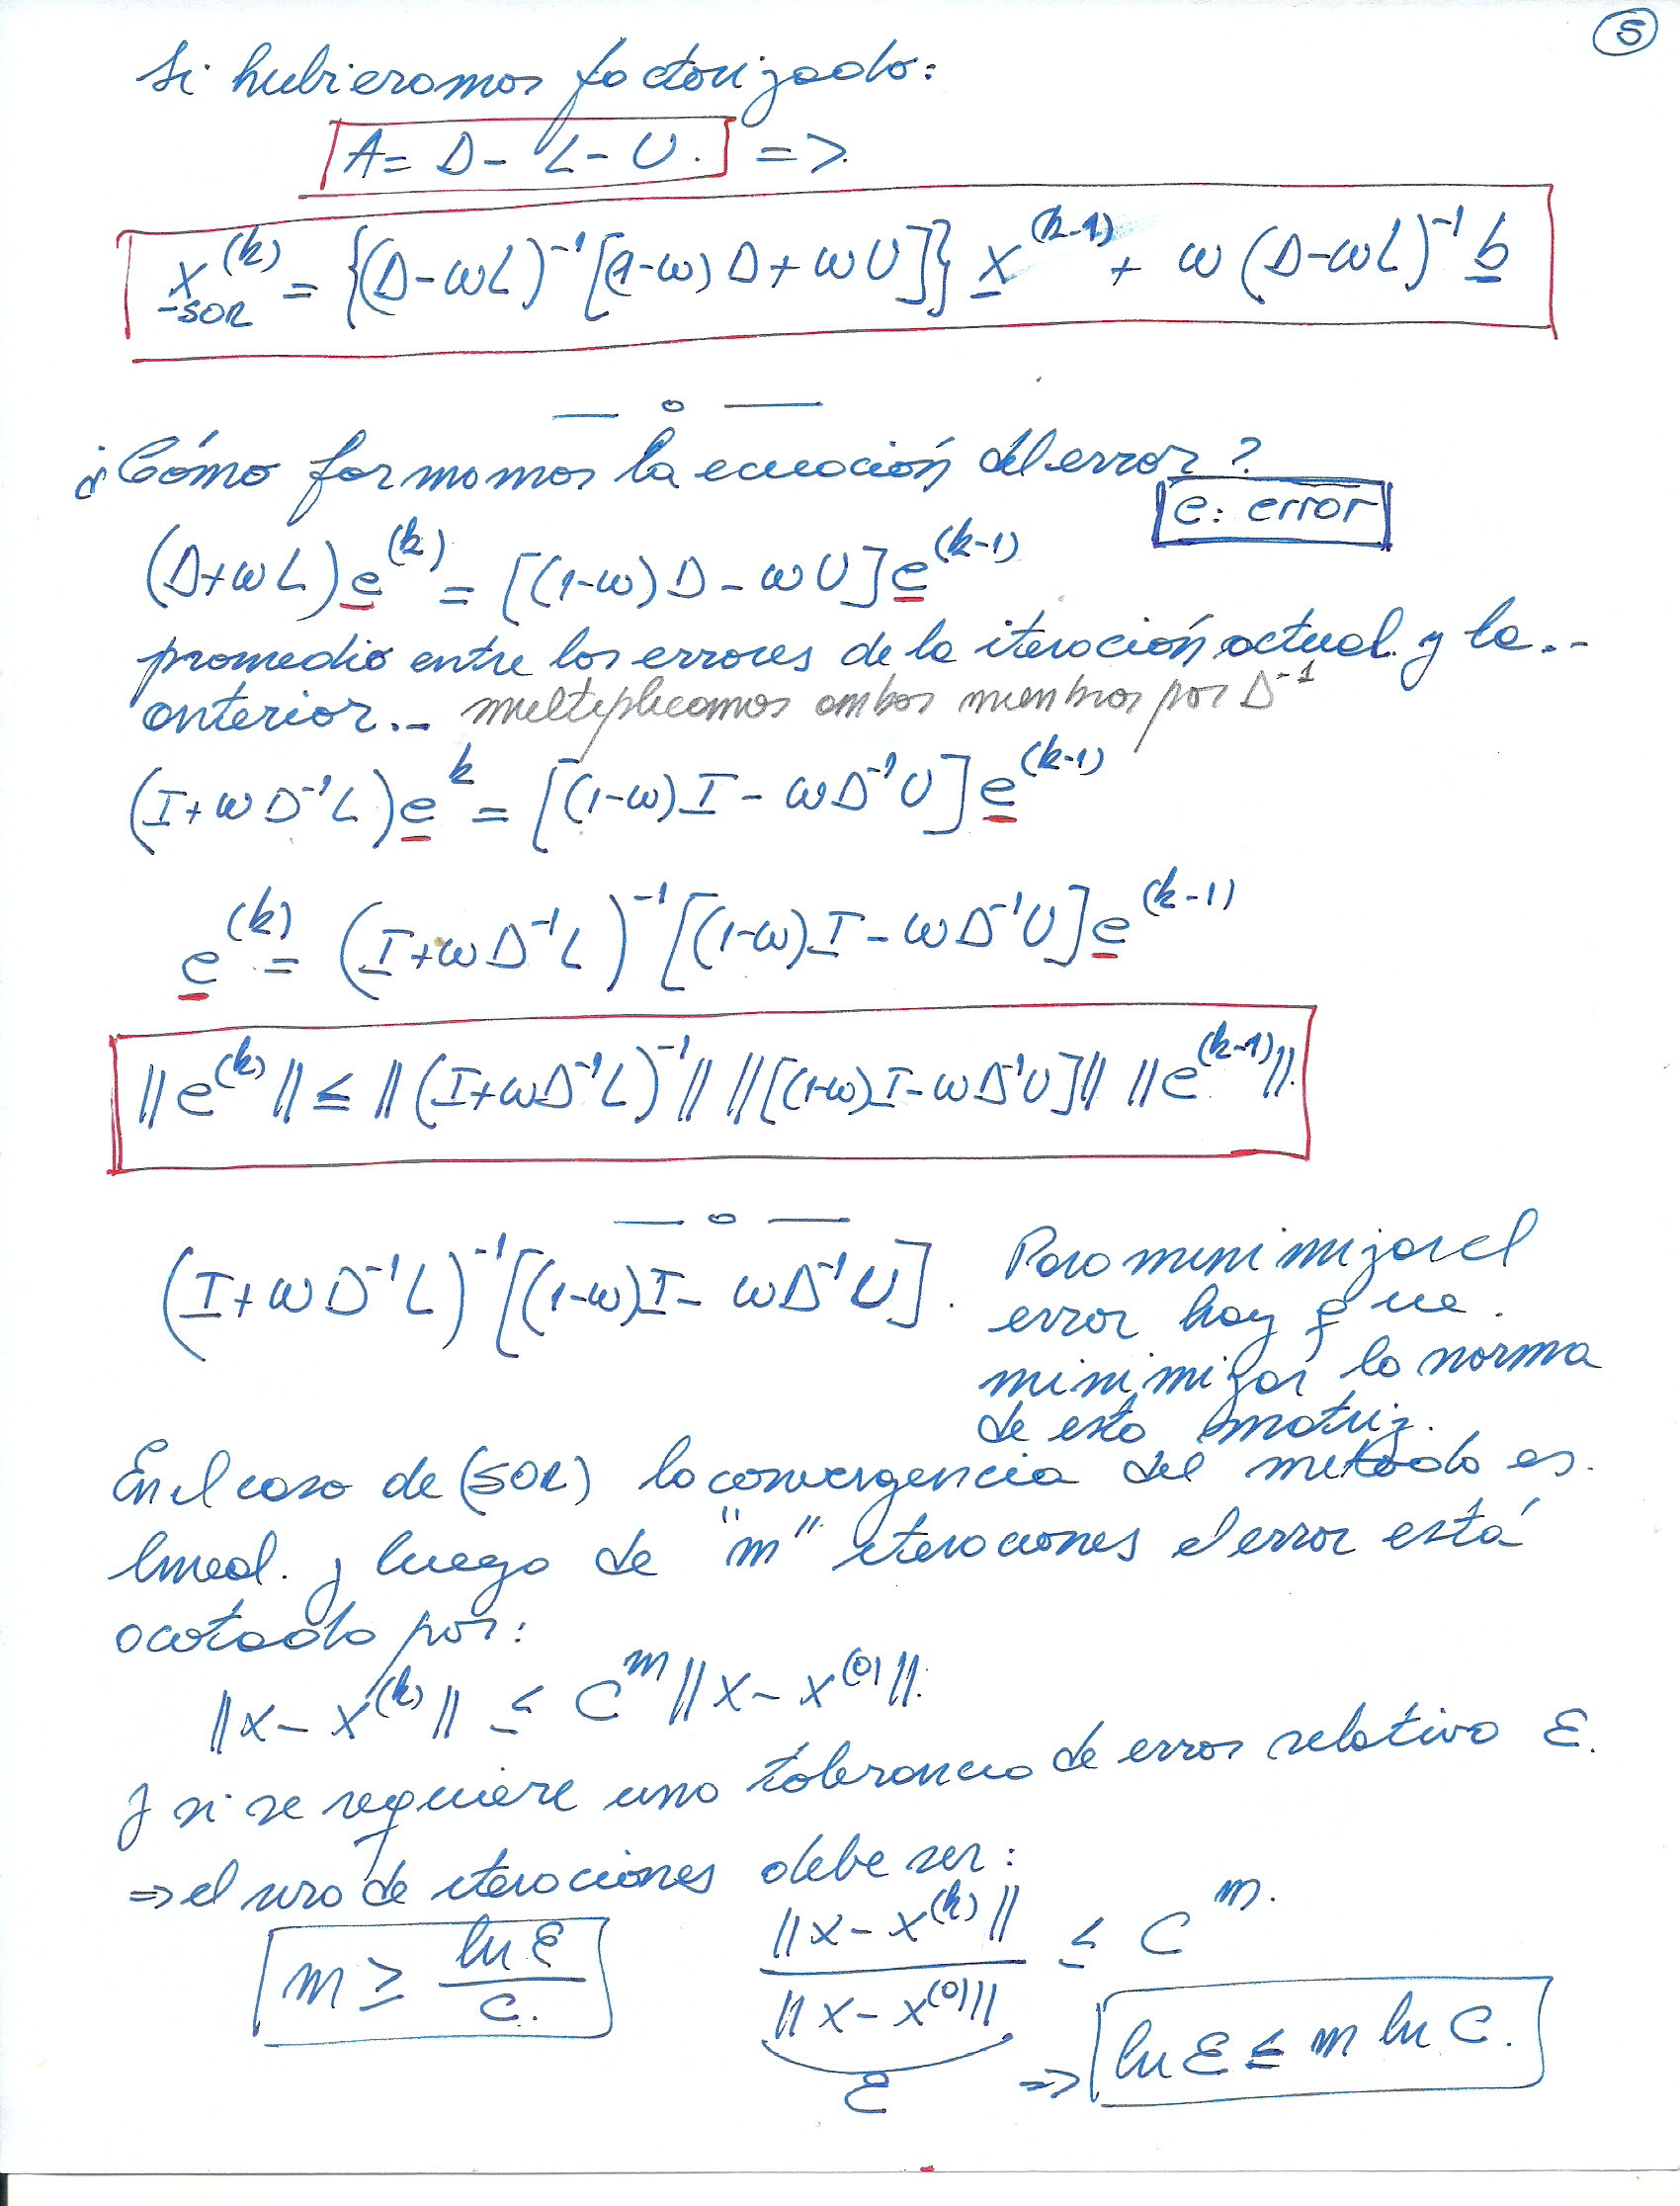 5
Si hubieramos factorizado:
A = D - L - U. =>
x_SOR^(k) = {(D-ωL)^-1 [(1-ω) D + ωU]} x^(k-1) + ω (D-ωL)^-1 b
¿Cómo formamos la ecuación del error?
e: error
(D+ωL) e^(k) = [(1-ω) D - ωU] e^(k-1)
promedio entre los errores de la iteración actual y la
anterior.- multiplicamos ambos miembros por D^-1
(I + ω D^-1 L) e^k = [(1-ω) I - ω D^-1 U] e^(k-1)
e^(k) = (I + ω D^-1 L)^-1 [(1-ω) I - ω D^-1 U] e^(k-1)
||e^(k)|| ≤ ||(I + ω D^-1 L)^-1|| ||[(1-ω) I - ω D^-1 U]|| ||e^(k-1)||.
(I + ω D^-1 L)^-1 [(1-ω) I - ω D^-1 U].
Para minimizar el
error hay que
minimizar la norma
de esta matriz.
En el caso de (SOR) la convergencia del metodo es
lineal. y luego de "m" iteraciones el error está
acotado por:
||x - x^(k)|| ≤ C^m ||x - x^(0)||.
y si se requiere una tolerancia de error relativo ε.
=> el nro de iteraciones debe ser:
m ≥ ln ε / c.
||x - x^(k)|| / ||x - x^(0)|| ≤ C^m.
ε
=> ln ε ≤ m ln C.